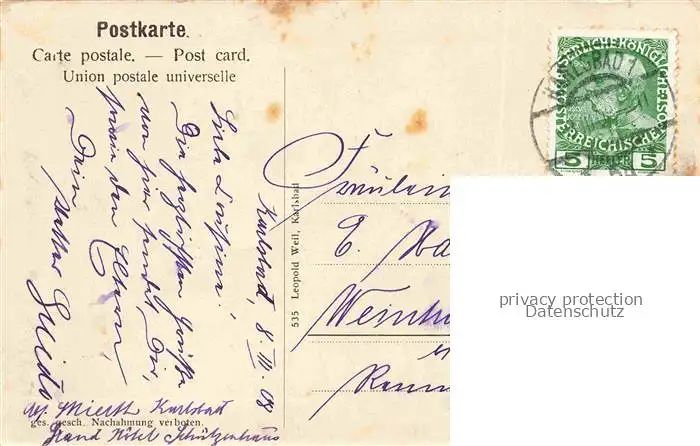 Postkarte.
Carte postale. — Post card.
Union postale universelle
Karlsbad, 8. III. 08
Liebe Cousine!
Die herzlichsten Grüße
von hier sendet Dir,
sowie den Eltern,
Dein
Vetter Guido
Karlsbad
ges. gesch. Nachahmung verboten.
Hotel Schützenhaus
535 Leopold Weil, Karlsbad
Fräulein
E.
KARLSBAD 1
KAISERLICHE KÖNIGLICHE
ÖSTERREICHISCHE
5 HELLER 5
privacy protection
Datenschutz